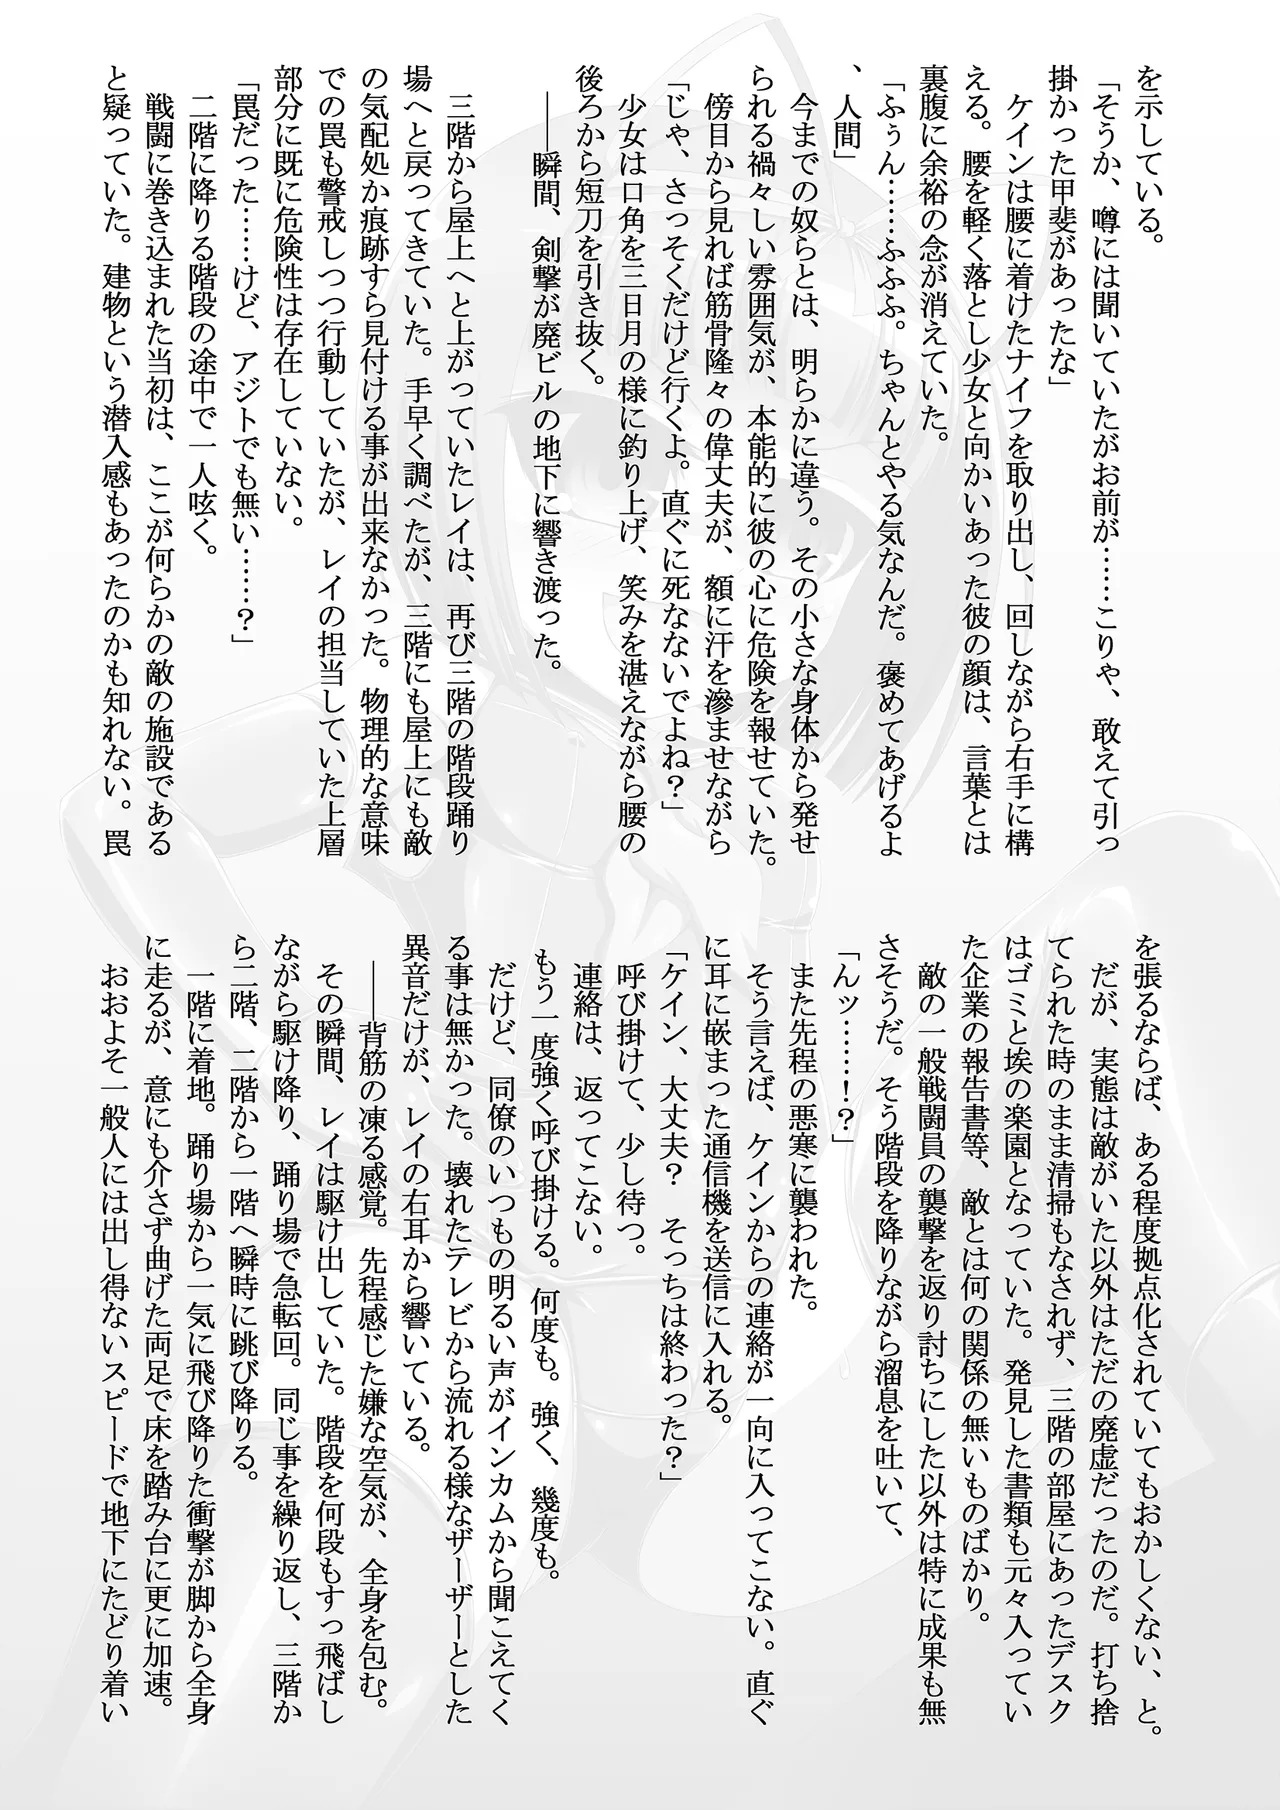 を示している。
「そうか、噂には聞いていたがお前が……こりゃ、敢えて引っ
掛かった甲斐があったな」
ケインは腰に着けたナイフを取り出し、回しながら右手に構
える。腰を軽く落とし少女と向かいあった彼の顔は、言葉とは
裏腹に余裕の念が消えていた。
「ふぅん……ふふふ。ちゃんとやる気なんだ。褒めてあげるよ
、人間」
今までの奴らとは、明らかに違う。その小さな身体から発せ
られる禍々しい雰囲気が、本能的に彼の心に危険を報せていた。
傍目から見れば筋骨隆々の偉丈夫が、額に汗を滲ませながら
「じゃ、さっそくだけど行くよ。直ぐに死なないでよね？」
少女は口角を三日月の様に釣り上げ、笑みを湛えながら腰の
後ろから短刀を引き抜く。
――瞬間、剣撃が廃ビルの地下に響き渡った。
三階から屋上へと上がっていたレイは、再び三階の階段踊り
場へと戻ってきていた。手早く調べたが、三階にも屋上にも敵
の気配処か痕跡すら見付ける事が出来なかった。物理的な意味
での罠も警戒しつつ行動していたが、レイの担当していた上層
部分に既に危険性は存在していない。
「罠だった……けど、アジトでも無い……？」
二階に降りる階段の途中で一人呟く。
戦闘に巻き込まれた当初は、ここが何らかの敵の施設である
と疑っていた。建物という潜入感もあったのかも知れない。罠
を張るならば、ある程度拠点化されていてもおかしくない、と。
だが、実態は敵がいた以外はただの廃虚だったのだ。打ち捨
てられた時のまま清掃もなされず、三階の部屋にあったデスク
はゴミと埃の楽園となっていた。発見した書類も元々入ってい
た企業の報告書等、敵とは何の関係の無いものばかり。
敵の一般戦闘員の襲撃を返り討ちにした以外は特に成果も無
さそうだ。そう階段を降りながら溜息を吐いて、
「んッ……！？」
また先程の悪寒に襲われた。
そう言えば、ケインからの連絡が一向に入ってこない。直ぐ
に耳に嵌まった通信機を送信に入れる。
「ケイン、大丈夫？　そっちは終わった？」
呼び掛けて、少し待つ。
連絡は、返ってこない。
もう一度強く呼び掛ける。何度も。強く、幾度も。
だけど、同僚のいつもの明るい声がインカムから聞こえてく
る事は無かった。壊れたテレビから流れる様なザーザーとした
異音だけが、レイの右耳から響いている。
――背筋の凍る感覚。先程感じた嫌な空気が、全身を包む。
その瞬間、レイは駆け出していた。階段を何段もすっ飛ばし
ながら駆け降り、踊り場で急転回。同じ事を繰り返し、三階か
ら二階、二階から一階へ瞬時に跳び降りる。
一階に着地。踊り場から一気に飛び降りた衝撃が脚から全身
に走るが、意にも介さず曲げた両足で床を踏み台に更に加速。
おおよそ一般人には出し得ないスピードで地下にたどり着い